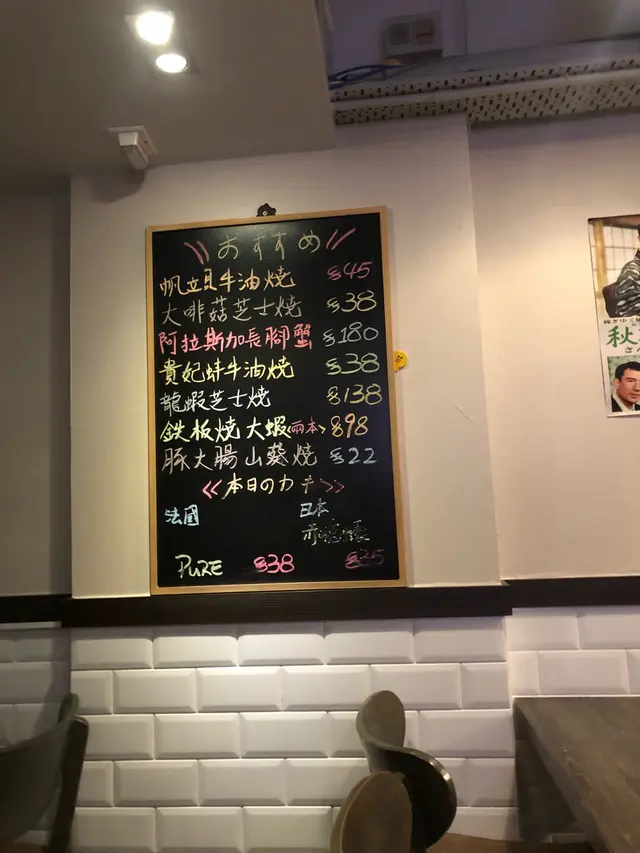 おすすめ
帆立貝牛油燒 $45
大啡菇芝士燒 $38
阿拉斯加長腳蟹 $180
貴妃蚌牛油燒 $38
龍蝦芝士燒 $138
鉄板燒大蝦(兩本) $98
豚大腸山葵燒 $22
<<本日のカキ>>
法國 日本
PURE $38 $35
秋
さん